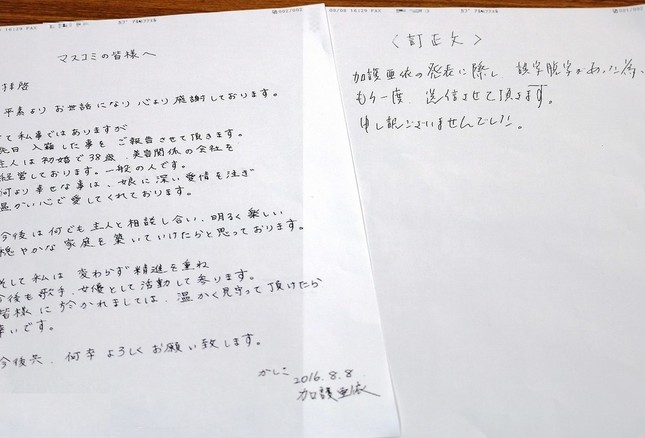 マスコミの皆様へ
拝啓
平素より お世話になり 心より感謝しております。
て私事ではありますが
先日 入籍した事を ご報告させて頂きます。
主人は初婚で38歳、美容関係の会社を
経営しております。一般の人です。
何より幸せな事は、娘に深い愛情を注ぎ
温かい心で愛してくれております。
今後は何でも主人と相談し合い、明るく楽しい
穏やかな家庭を築いていけたらと思っております。
そして私は 変わらず精進を重ね
今後も歌手、女優として活動して参ります。
皆様に於かれましては、温かく見守って頂けたら
幸いです。
今後共、何卒よろしくお願い致します。
かしこ
2016.8.8
加護亜依
〈訂正文〉
加護亜依の発表に際し 誤字脱字があった為、
もう一度、送信させて頂きます。
申し訳ございませんでした。